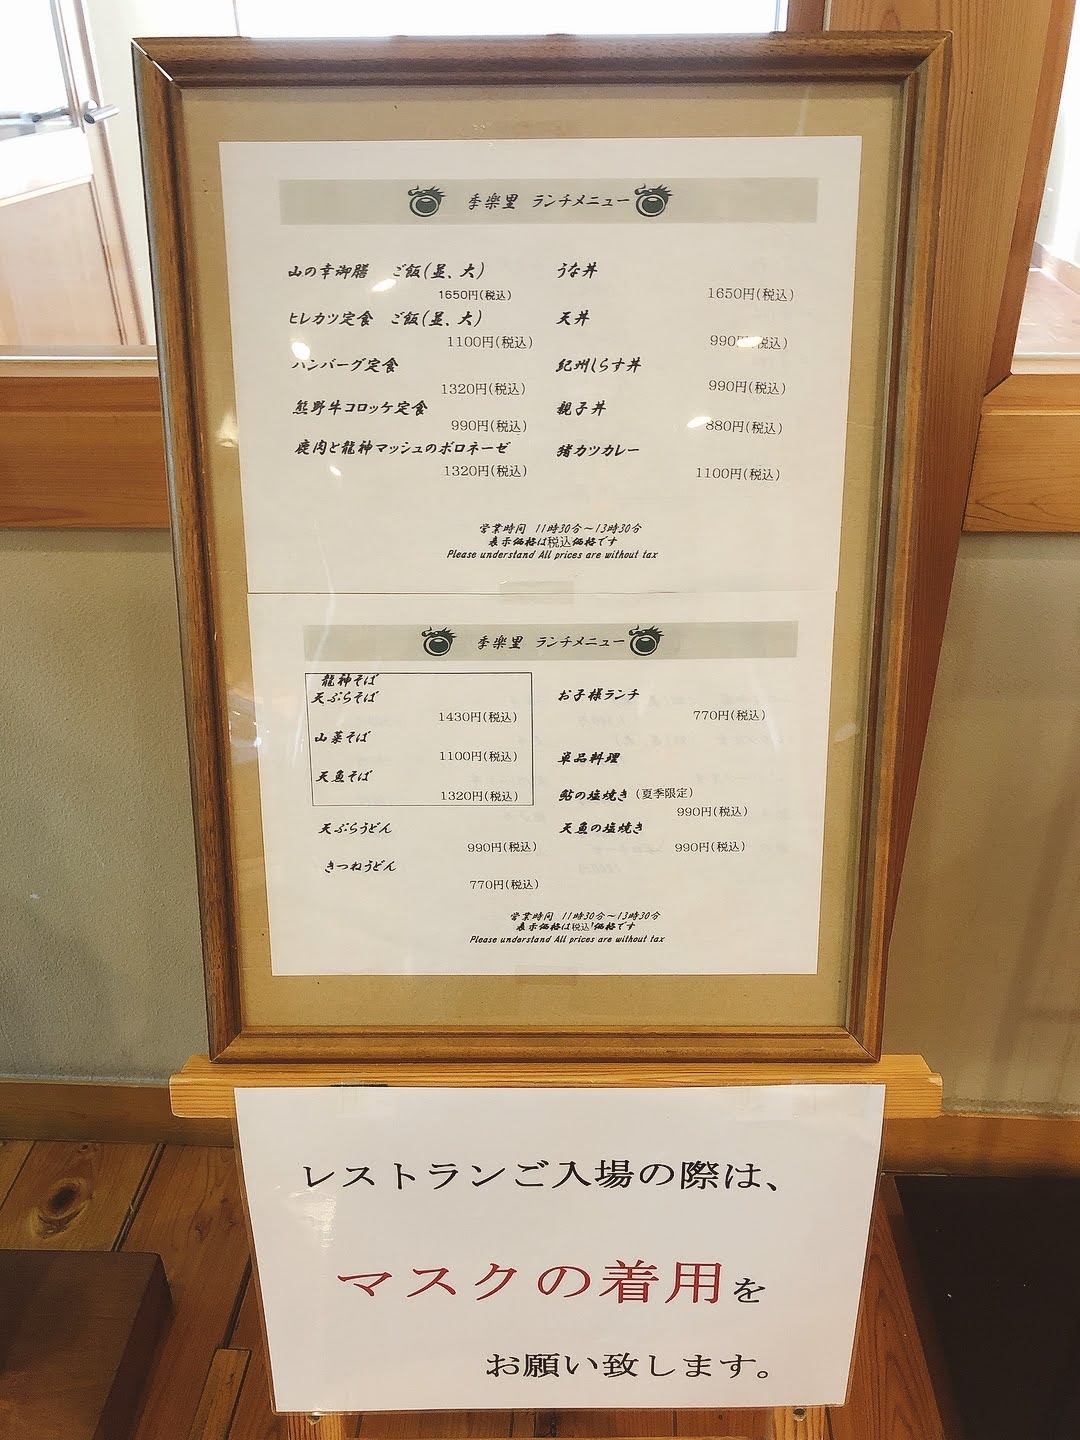 季楽里 ランチメニュー
山の幸御膳 ご飯(並、大)
1650円(税込)
ヒレカツ定食 ご飯(並、大)
1100円(税込)
ハンバーグ定食
1320円(税込)
熊野牛コロッケ定食
990円(税込)
鹿肉と龍神マッシュのボロネーゼ
1320円(税込)
うな丼
1650円(税込)
天丼
990円(税込)
紀州しらす丼
990円(税込)
親子丼
880円(税込)
猪カツカレー
1100円(税込)
営業時間 11時30分～13時30分
表示価格は税込価格です
Please understand All prices are without tax
季楽里 ランチメニュー
龍神そば
天ぷらそば
1430円(税込)
山菜そば
1100円(税込)
天魚そば
1320円(税込)
天ぷらうどん
990円(税込)
きつねうどん
770円(税込)
お子様ランチ
770円(税込)
単品料理
鮎の塩焼き(夏季限定)
990円(税込)
天魚の塩焼き
990円(税込)
営業時間 11時30分～13時30分
表示価格は税込価格です
Please understand All prices are without tax
レストランご入場の際は、
マスクの着用を
お願い致します。